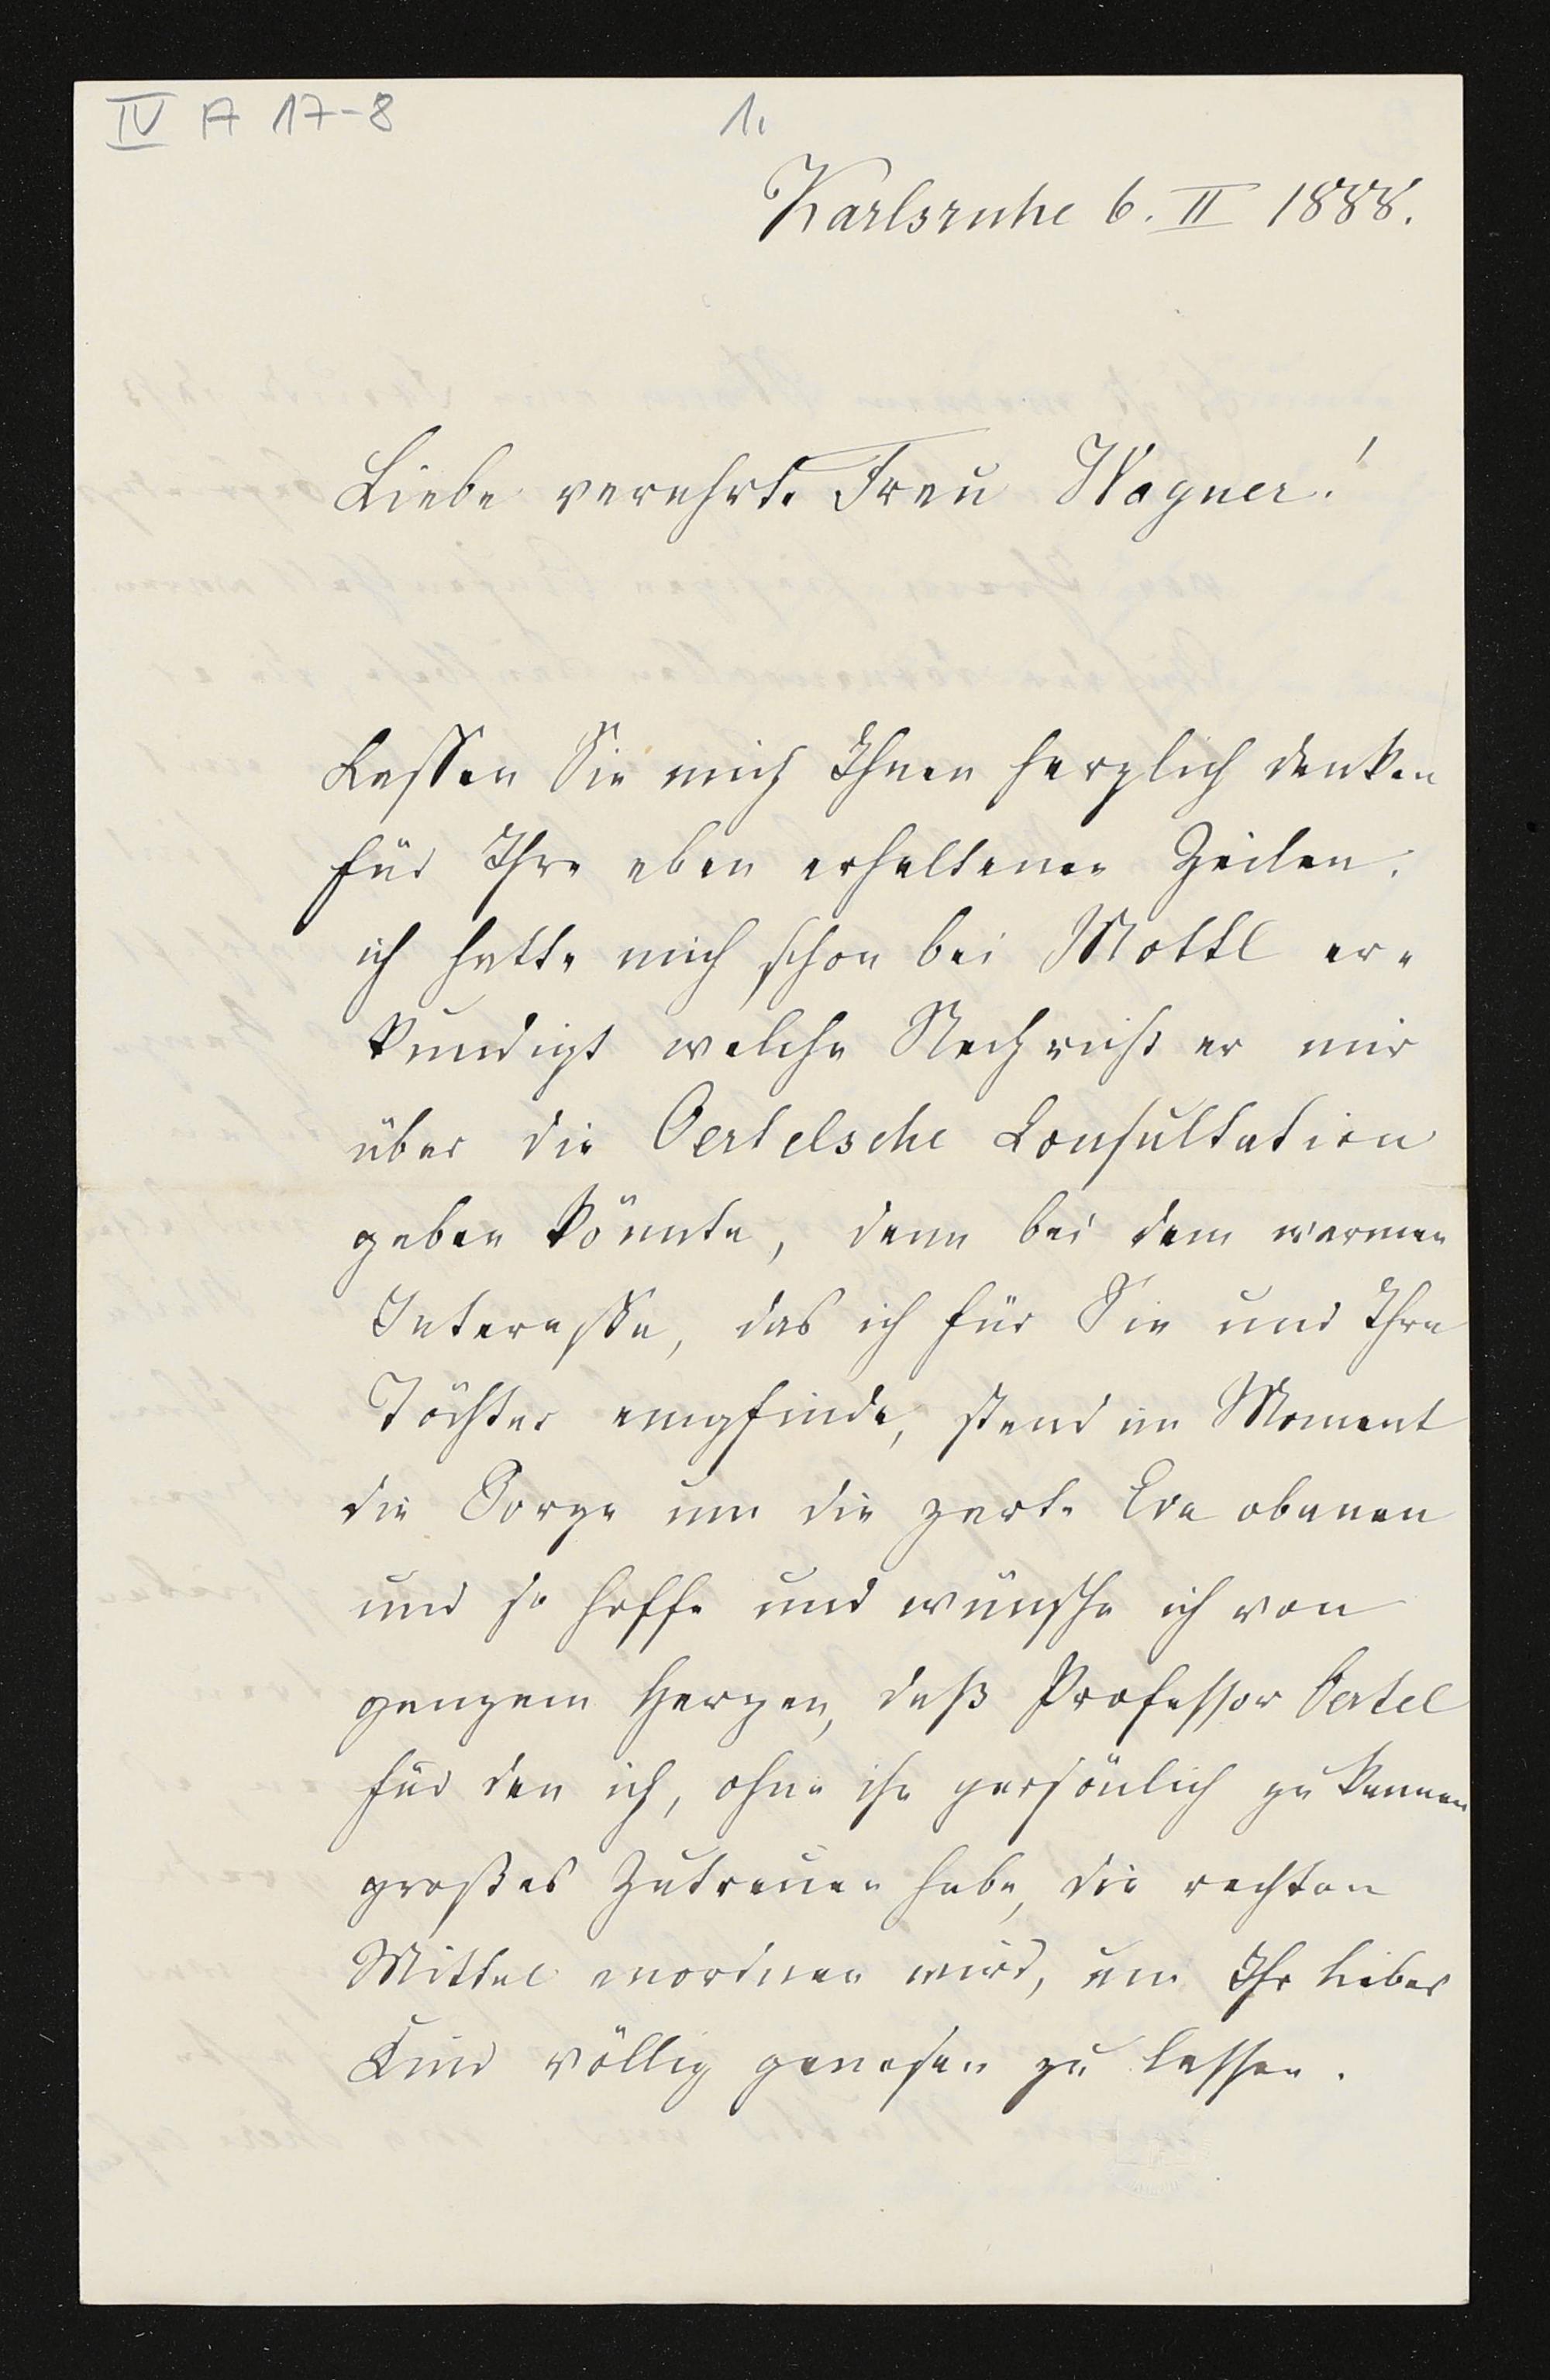 IV A 17-8
1.
Karlsruhe 6. II 1888.
Liebe verehrte Frau Wagner!
Lassen Sie mich Ihnen herzlich danken
für Ihre eben erhaltenen Zeilen.
ich hatte mich schon bei Mottl er-
kundigt welche Nachricht er mir
über die Oertelsche Consultation
geben könnte, denn bei dem warmen
Interesse, das ich für Sie und Ihre
Töchter empfinde, stand im Moment
die Sorge um die zarte Eva obenan
und so hoffe und wünsche ich von
ganzem Herzen, daß Professor Oertel
für den ich, ohne ihn persönlich zu kennen
großes Zutrauen habe, die rechten
Mittel anordnen wird, um Ihr liebes
Kind völlig genesen zu lassen.